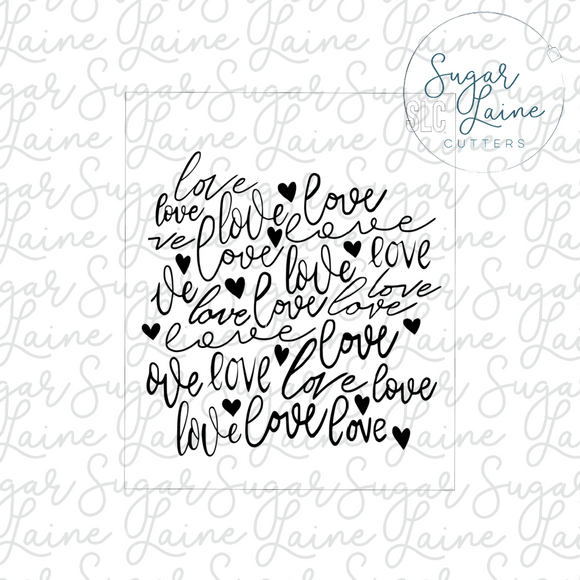 Sugar
Laine
SLC
CUTTERS
love
love love love
ve love love
love love
ve love love love love
love love
ove love love love
love love love